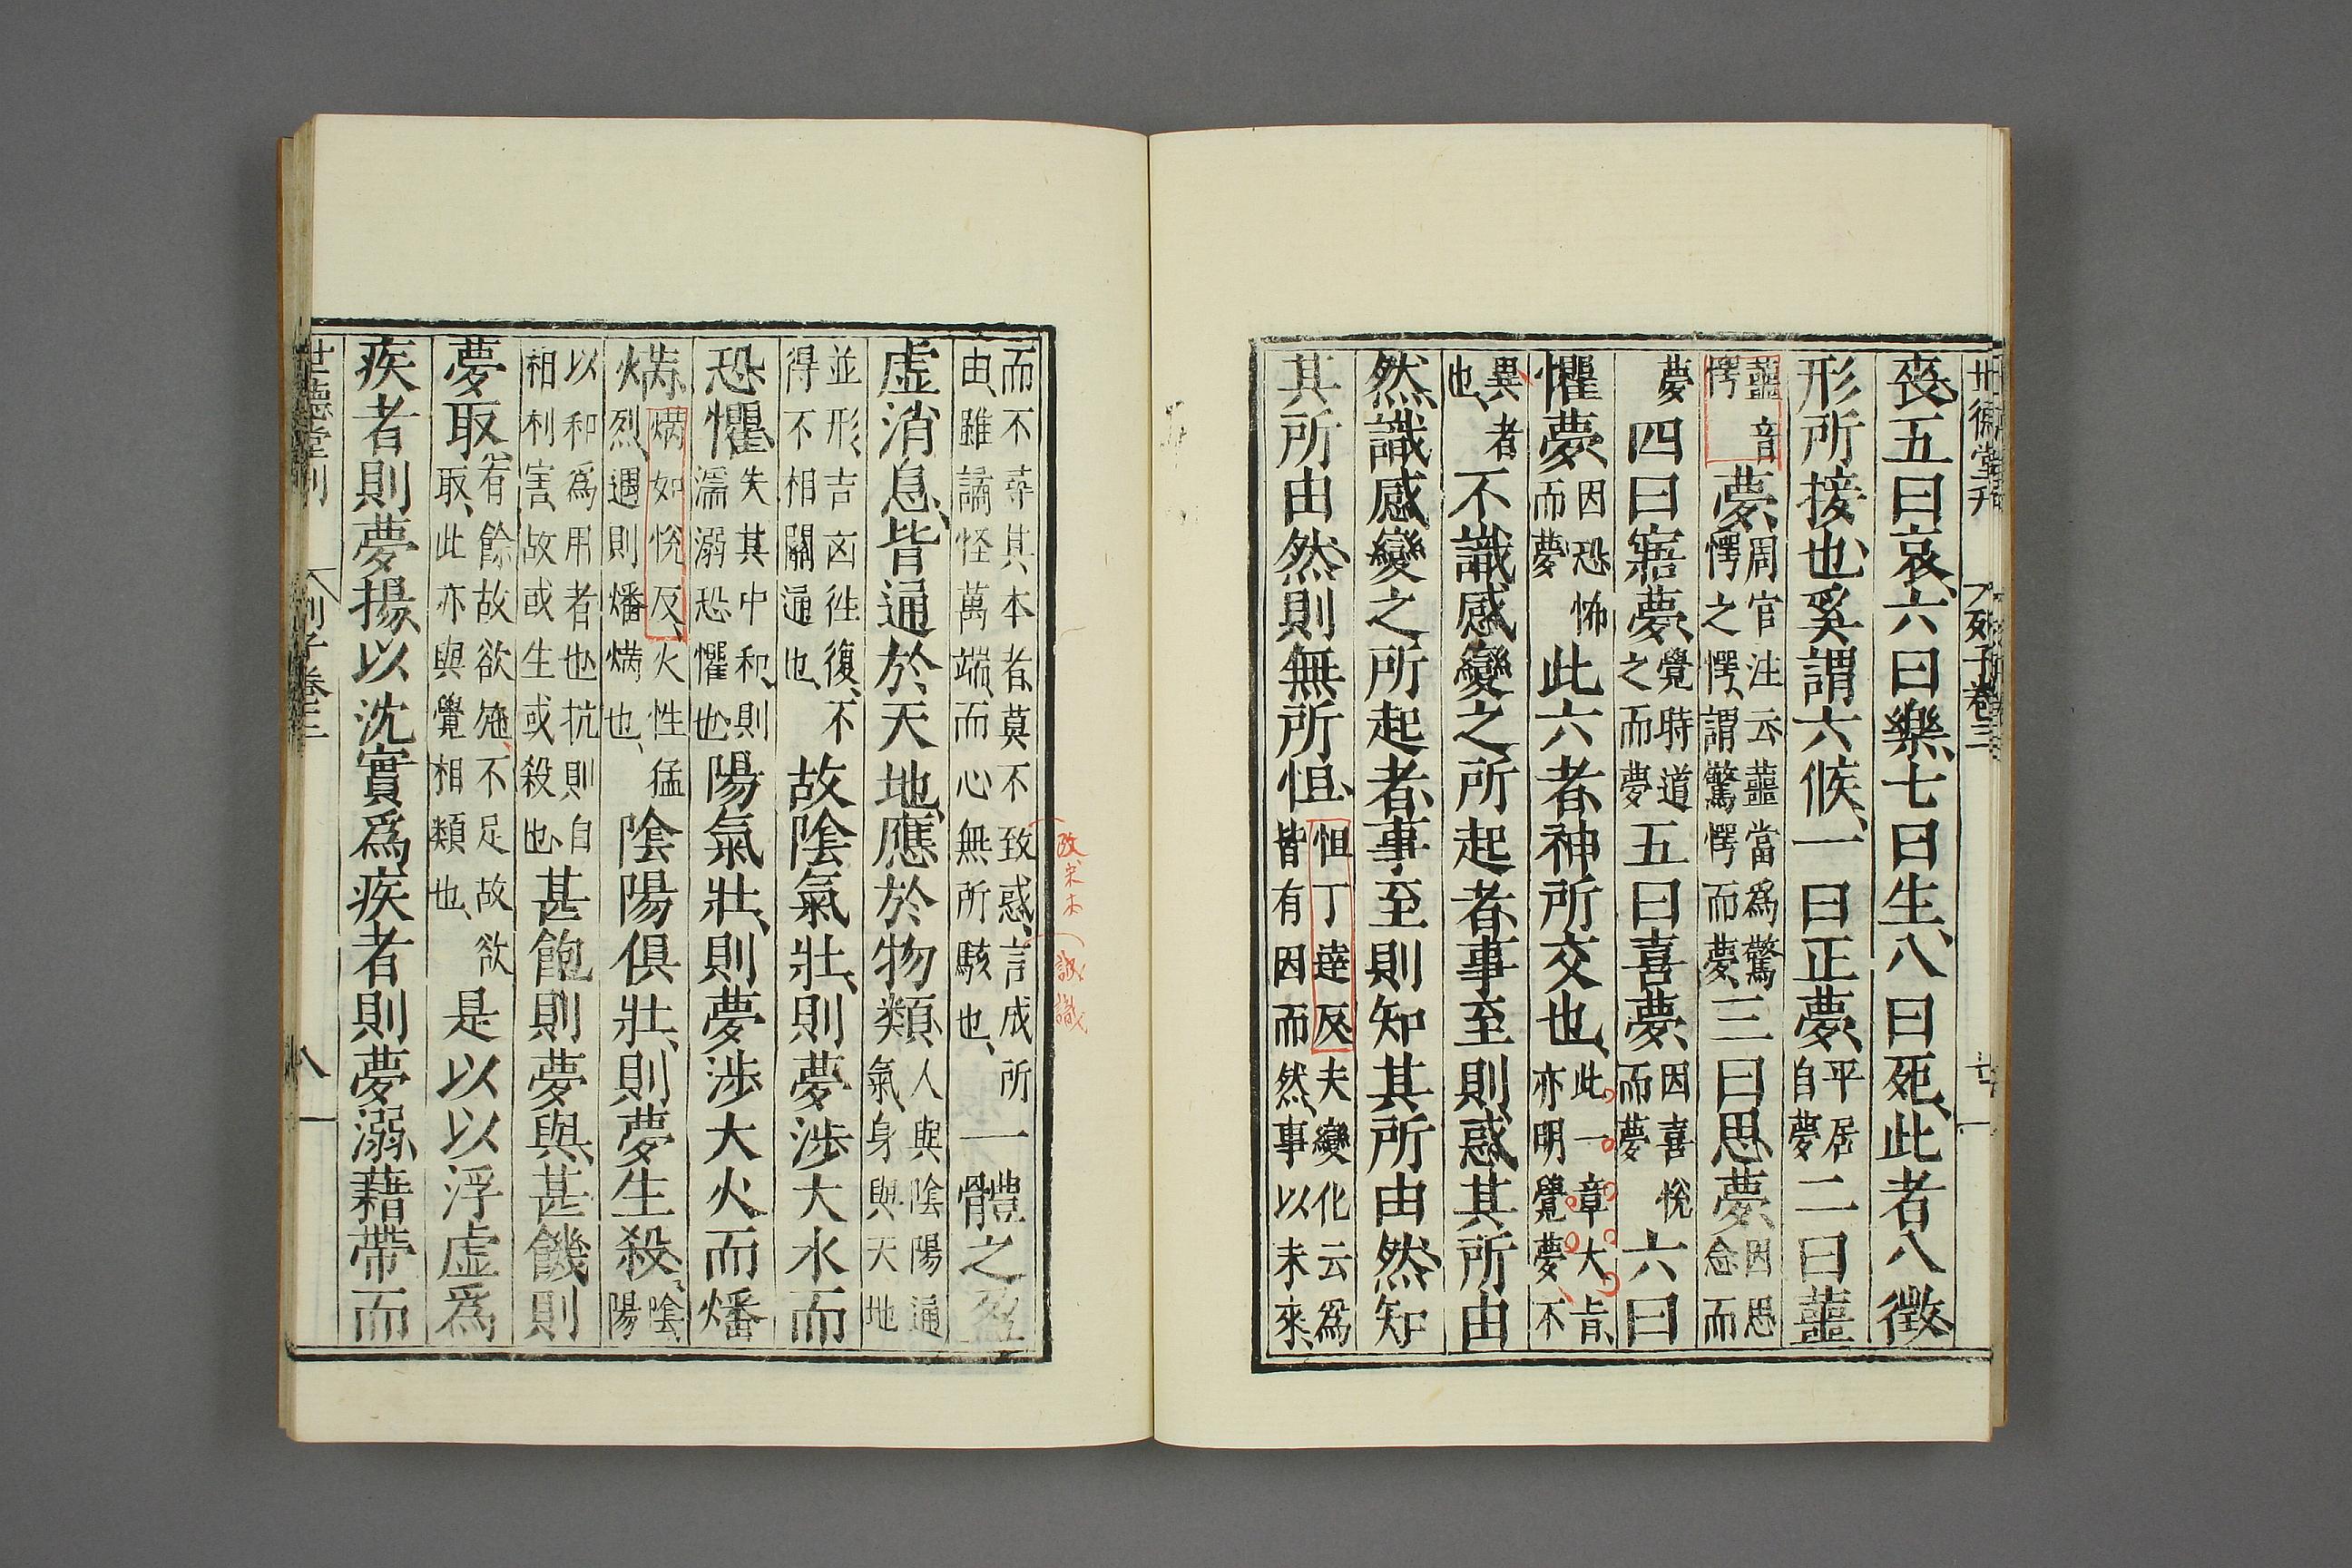 世德堂刊 列子卷三 七
喪、五曰哀、六曰樂、七曰生、八曰死、此者八徵
形所接也、奚謂六候、一曰正夢、平居自夢二曰蘁
蘁音愕夢、周官注云蘁當爲驚愕之愕、謂驚愕而夢、三曰思夢、因思念而
夢四曰寤夢、覺時道之而夢五曰喜夢、因喜悅而夢六曰
懼夢、因恐怖而夢此六者、神所交也、此一章大旨、亦明覺夢不
異者也、不識感變之所起者、事至則惑其所由
然、識感變之所起者、事至則知其所由然、知
其所由然、則無所怛、怛丁達反夫變化云爲皆有因而然、事以未來、
而不尋其本者、莫不致惑、言成所由、雖譎怪萬端、而心無所駭也、一體之盈
虛消息、皆通於天地、應於物類、人與陰陽通氣、身與天地
並形、吉凶徃復、不得不相關通也、故陰氣壯、則夢涉大水而
恐懼、失其中和、則濡溺恐懼也、陽氣壯、則夢涉大火而燔
焫、焫如悅反、火性猛烈、遇則燔焫也、陰陽俱壯、則夢生殺、陰陽
以和爲用者也、抗則自相利害、故或生或殺也、甚飽則夢與、甚饑則
夢取、有餘故欲施、不足故欲取、此亦與覺相類也、是以以浮虛爲
疾者則夢揚、以沈實爲疾者則夢溺、藉帶而
世德堂刊 列子卷三 八
改宋本